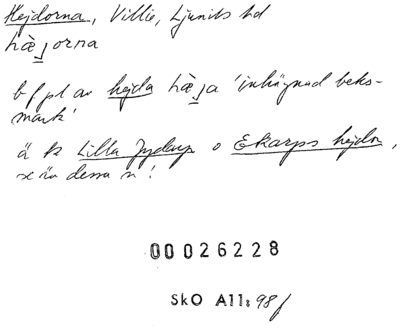 Hejdorna, Villie, Ljunits hd
hæ̀jorna
b f pl av hejda hæ̀ja 'inhägnad betes-
mark'
ä k Lilla Jydarp o Ekarps hejdor,
se är dessa n!
00026228
SkO A11: 98f